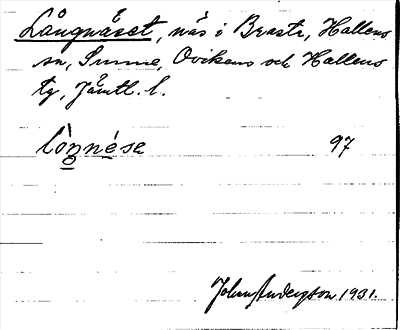 Långnäset, näs i Brastr, Hallens
sn, Sunne, Ovikens och Hallens
tg, Jämtl. l.
lònnése 97
Johan Anderson 1931.